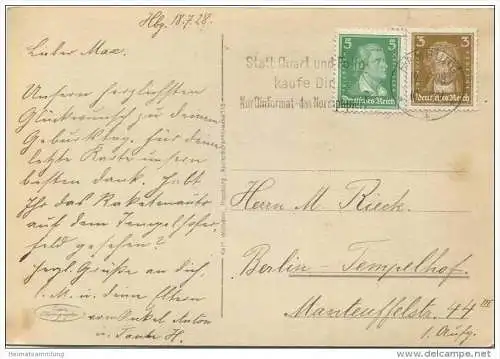 Hbg. 18.7.28.
Lieber Max.
Unseren herzlichsten
Glückwunsch zu deinem
Geburtstag. Für deine
letzte Karte unsern
besten Dank. Habt
Ihr das Raketenauto
auf dem Tempelhofer-
feld gesehen?
Herzl. Grüße an dich,
u. deine Eltern
von Onkel Anton
u. Tante H.
Statt Quart und Folio
kaufe Din
Nur Dinformat - das Normalformat
5 5
Deutsches Reich
3 3
Deutsches Reich
Herrn M. Rieck.
Berlin Tempelhof.
Manteuffelstr. 44 III
1. Aufg.
www.heimatsammlung.de